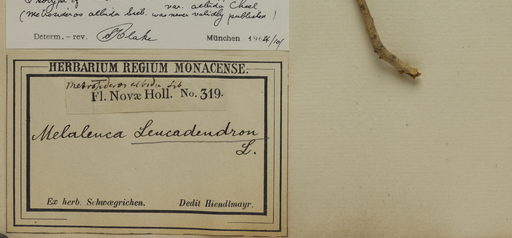 var. albida Cheel
(Metrosideros albida Sieb. was never validly published)
Determ. – rev. S T Blake München 1964/10/
HERBARIUM REGIUM MONACENSE.
Metrosideros albida Sib
Fl. Novæ Holl. No. 319.
Melaleuca Leucadendron
L.
Ex herb. Schwægrichen. Dedit Hiendlmayr.